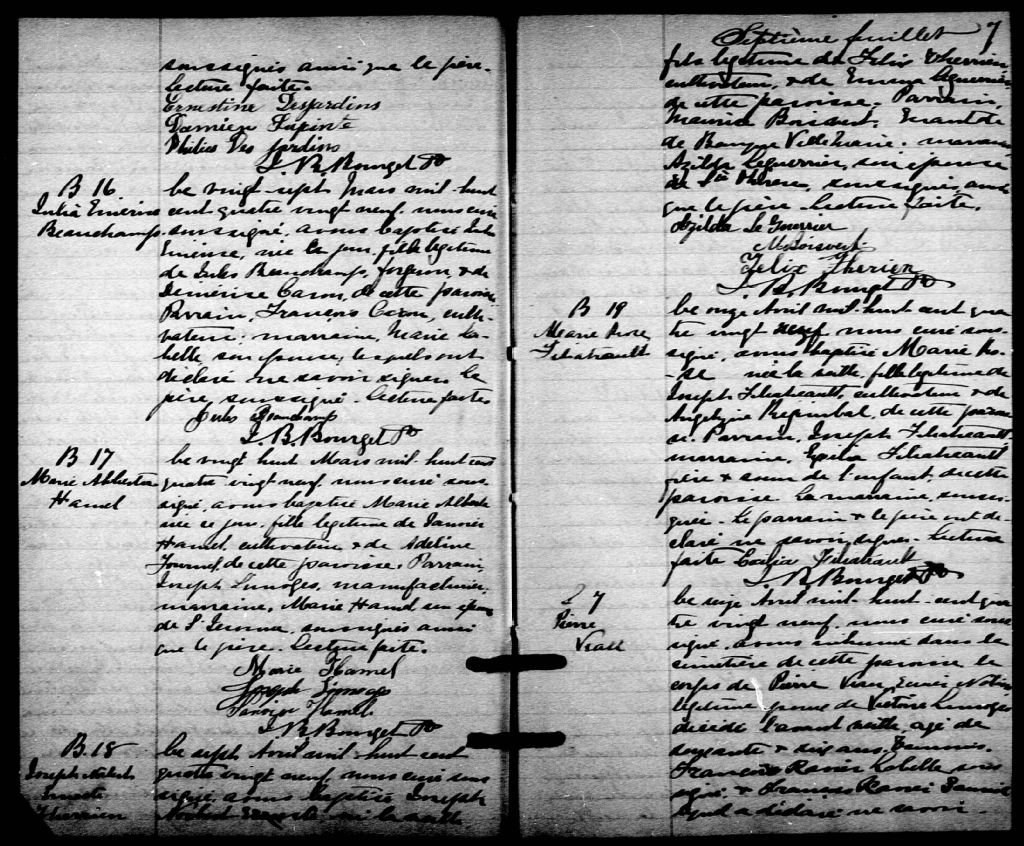 soussignés ainsi que le père.
Lecture faite.
Ernestine Desjardins
Damien Lapinte
Philias Des jardins
J. B. Bourget Ptr
B 16
Julia Emérise
Beauchamp
Le vingt-sept Mars mil-huit
cent quatre vingt neuf. nous curé
soussigné, avons baptisé Julia
Emérise, née ce jour, fille légitime
de Jules Beauchamp, forgeron & de
Démérise Caron, de cette paroisse
Parrain, François Caron, culti-
vateur; marraine, Marie La-
belle son épouse, lesquels ont
déclaré ne savoir signer. Le
père, soussigné. Lecture faite.
Jules Beauchamp
J. B. Bourget Ptr
B 17
Marie
Hamel
Le vingt huit Mars mil-huit cent
quatre vingt neuf. nous curé sous
signé, avons baptisé Marie
née ce jour. fille légitime de Janvier
Hamel, cultivateur & de Adeline
Fournel, de cette paroisse. Parrain,
Joseph Limoges, manufacturier,
marraine, Marie Hamel son épouse
de St Jérome, soussignés ainsi
que le père. Lecture faite.
Marie Hamel
Joseph Limoges
Janvier Hamel
J. B. Bourget Ptr
B. 18
Joseph Norbert
Ernest
Therrien
Le sept Avril mil-huit cent
quatre vingt neuf nous curé sous
signé, avons baptisé Joseph
Norbert Ernest né la veille
Septième feuillet 7
fils légitime de Félix Therrien
cultivateur, & de Emma Leguerrier
de cette paroisse. Parrain,
Maurice Boisvert, Gérant de
de Banque Ville Marie. marraine
Azilda Leguerrier, son épouse
de Ste Thérèse, soussignés ainsi
que le père. Lecture faite.
Azilda Le Guerrier
M. Boisvert
Felix Therien
J. B. Bourget Ptr
B 19
Marie Rose
Filiatrault
Le onze Avril mil-huit cent qua
tre vingt neuf nous curé sous-
signé, avons baptisé Marie Ro-
-se née la veille, fille légitime de
Joseph Filiatrault, cultivateur & de
Angélique Regimbal, de cette parois
se. Parrain, Joseph Filiatrault
marraine, Filiatrault
frère & soeur de l'enfant, de cette
paroisse La marraine, soussi-
gnée. Le parrain & le père ont dé-
claré ne savoir signer. Lecture
faite Filiatrault
J. B. Bourget Ptr
S 7
Pierre
Viau
Le seize Avril mil-huit-cent qua
tre vingt neuf. nous curé sous
signé, avons inhumé dans le
cimetière de cette paroisse le
corps de Pierre Viau,
légitime époux de Victoire Limoges
décédé l'avant veille, agé de
soixante & dix ans, Témoins,
François Xavier Labelle sous
signé & François Xavier
lequel a déclaré ne savoir